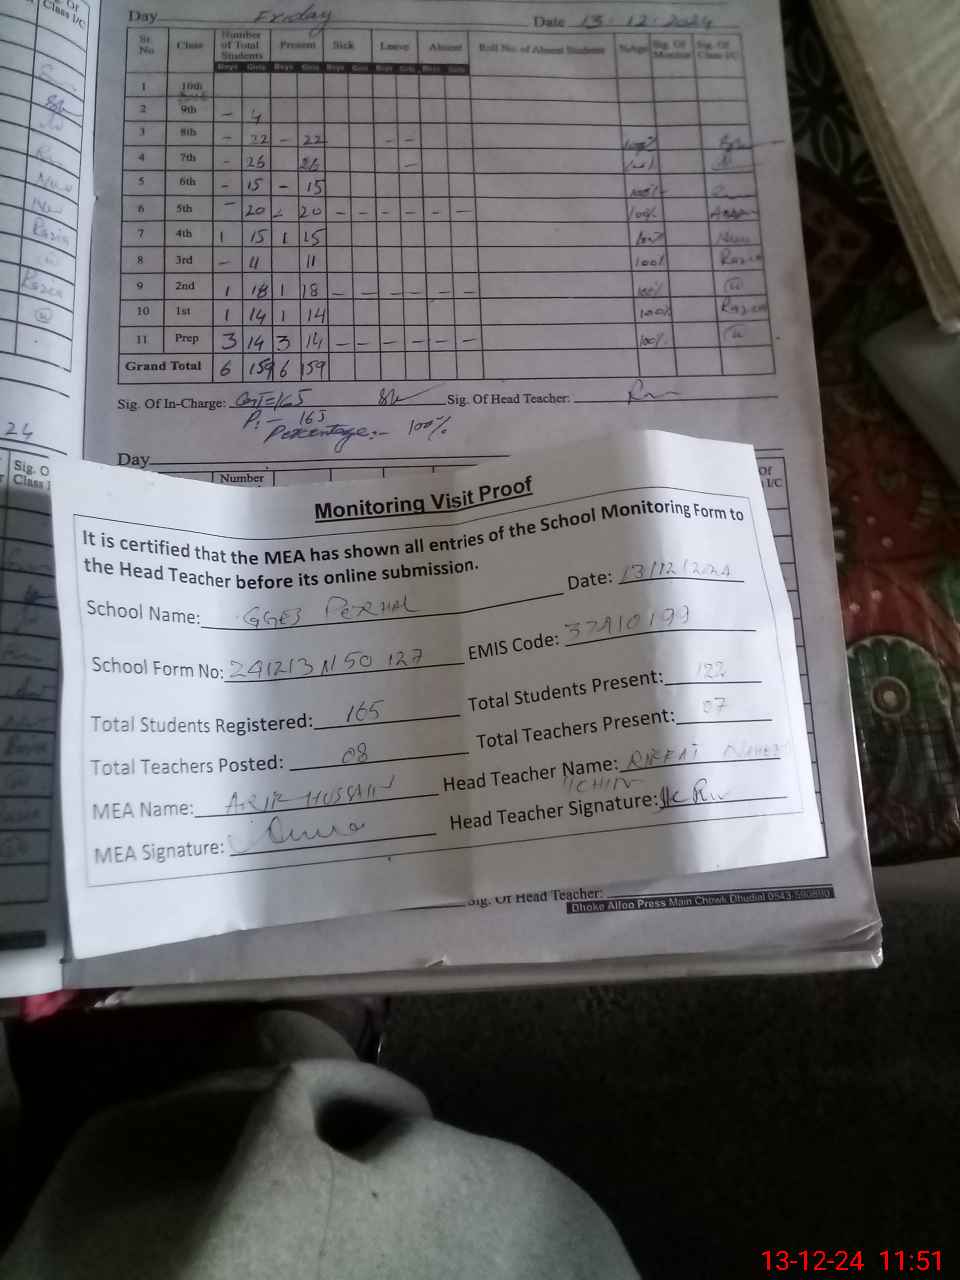 Day Friday Date 13.12.2024
Sr. No Class Number of Total Students Present Sick Leave Absent Roll No. of Absent Students %Age Sig. Of Monitor Sig. Of Class I/C
Boys Girls Boys Girls Boys Girls Boys Girls Boys Girls
1 10th
2 9th - 4
3 8th - 22 - 22 - - 100%
4 7th - 26 26 -
5 6th - 15 - 15 100%
6 5th - 20 - 20 - - - - - - 100%
7 4th 1 15 1 15 100%
8 3rd - 11 11 100% Razia
9 2nd 1 18 1 18 - - - - - - 100%
10 1st 1 14 1 14 100% Razia
11 Prep 3 14 3 14 - - - - - - 100%
Grand Total 6 159 6 159
Sig. Of In-Charge: =165 Sig. Of Head Teacher:
P:- 165
Percentage:- 100%
24
Day
Sig. O
Class I
Number
Of
I/C
Monitoring Visit Proof
It is certified that the MEA has shown all entries of the School Monitoring Form to
the Head Teacher before its online submission.
Date: 13/12/2024
School Name: GGES PERHAL
EMIS Code: 37210199
School Form No: 241213N50127
Total Students Present: 122
Total Students Registered: 165
Total Teachers Present: 07
Total Teachers Posted: 08
Head Teacher Name: RIFFAT
MEA Name: ARIF HUSSAIN
Head Teacher Signature:
MEA Signature:
Sig. Of Head Teacher:
Dhoke Alloo Press Main Chowk Dhudial 0543-590890
13-12-24 11:51